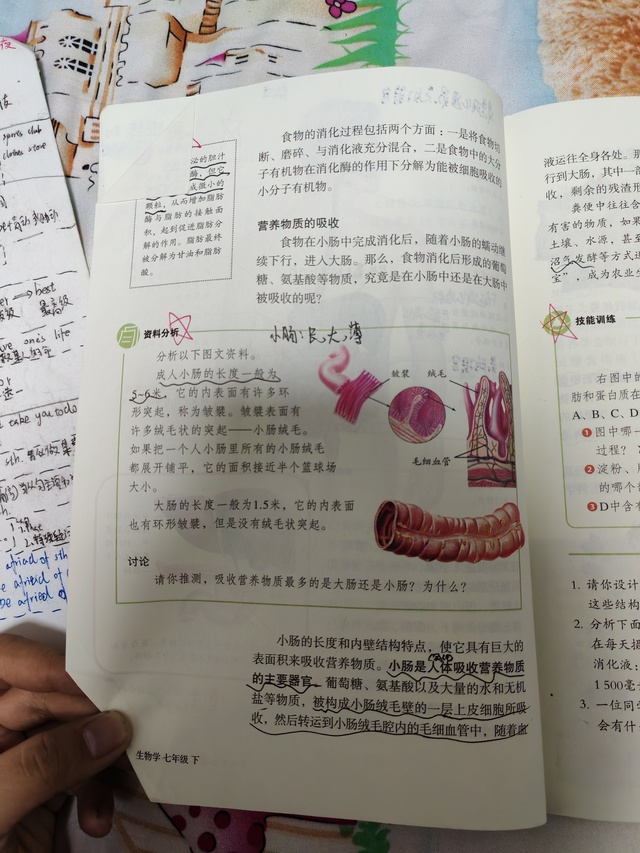 泌的胆汁
酶，但它
成微小的
颗粒，从而增加脂肪
酶与脂肪的接触面
积，起到促进脂肪分
解的作用。脂肪最终
被分解为甘油和脂肪
酸。
食物的消化过程包括两个方面：一是将食物切
断、磨碎、与消化液充分混合，二是食物中的大分
子有机物在消化酶的作用下分解为能被细胞吸收的
小分子有机物。
营养物质的吸收
食物在小肠中完成消化后，随着小肠的蠕动继
续下行，进人大肠。那么，食物消化后形成的葡萄
糖、氨基酸等物质，究竟是在小肠中还是在大肠中
被吸收的呢？
资料分析
小肠：长，大，薄
分析以下图文资料。
成人小肠的长度一般为
5-6米，它的内表面有许多环
形突起，称为皱襞。皱襞表面有
许多绒毛状的突起——小肠绒毛。
如果把一个人小肠里所有的小肠绒毛
都展开铺平，它的面积接近半个篮球场
大小。
皱襞
绒毛
毛细血管
大肠的长度一般为1.5米，它的内表面
也有环形皱襞，但是没有绒毛状突起。
讨论
请你推测，吸收营养物质最多的是大肠还是小肠？为什么？
小肠的长度和内壁结构特点，使它具有巨大的
表面积来吸收营养物质。小肠是人体吸收营养物质
的主要器官。葡萄糖、氨基酸以及大量的水和无机
盐等物质，被构成小肠绒毛壁的一层上皮细胞所吸
收，然后转运到小肠绒毛腔内的毛细血管中，随着血
生物学 七年级 下
液运往全身各处。那
行到大肠，其中一部
收，剩余的残渣形
粪便中往往含
有害的物质，如果
土壤、水源，甚至
沼气发酵等方式进
宝”，成为农业生
技能训练
右图中的
肪和蛋白质在
A、B、C、D
1 图中哪一
过程？
2 淀粉、脂
的哪个部
3 D中含有
1. 请你设计
这些结构
2. 分析下面
在每天摄
消化液：
1 500毫升
3. 一位同学
会有什
sports club
clothes store
best
最高级
one's life
take you to
afraid of sth
be afraid of
be afraid of